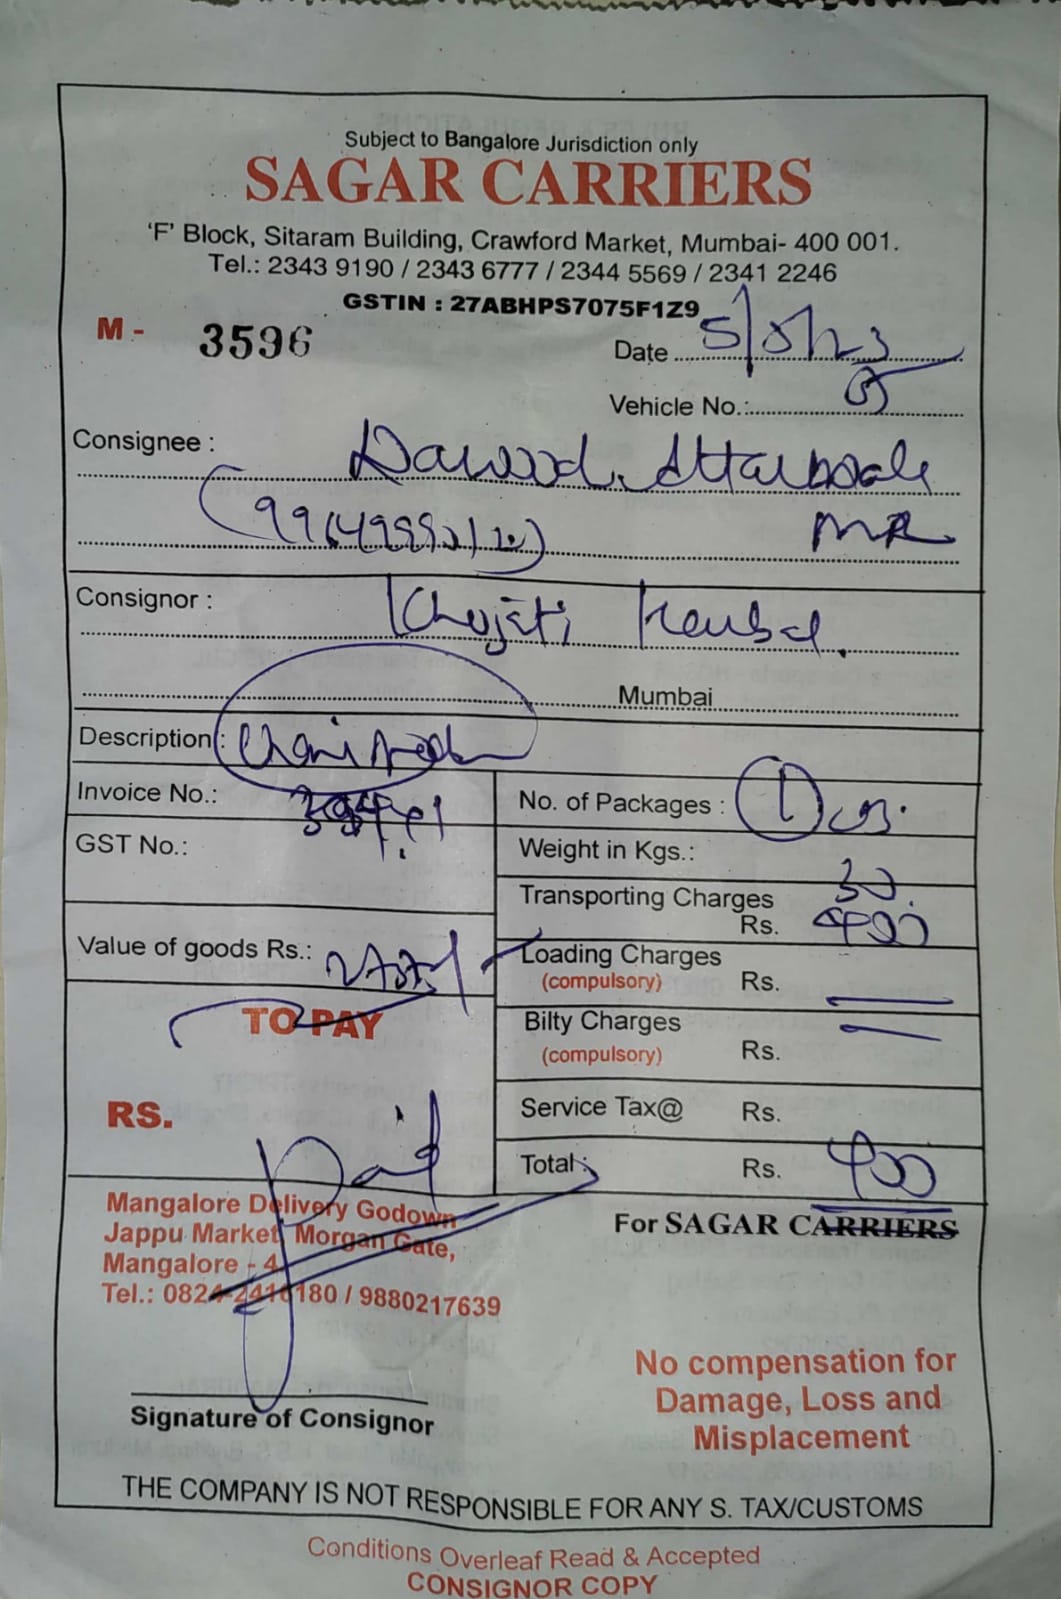 Subject to Bangalore Jurisdiction only
SAGAR CARRIERS
'F' Block, Sitaram Building, Crawford Market, Mumbai- 400 001.
Tel.: 2343 9190 / 2343 6777 / 2344 5569 / 2341 2246
GSTIN : 27ABHPS7075F1Z9
M - 3596
Date
Vehicle No.:
Consignee : Dawood
Consignor :
Mumbai
Description :
Invoice No.:
No. of Packages : 1
GST No.:
Weight in Kgs.: 30
Transporting Charges
Rs. 400
Value of goods Rs.:
Loading Charges
(compulsory) Rs.
TO PAY
Bilty Charges
(compulsory) Rs.
RS.
Service Tax@ Rs.
Paid
Total : Rs. 400
Mangalore Delivery Godown
Jappu Market, Morgan Gate,
Mangalore - 4
Tel.: 0824-2416180 / 9880217639
For SAGAR CARRIERS
No compensation for
Damage, Loss and
Misplacement
Signature of Consignor
THE COMPANY IS NOT RESPONSIBLE FOR ANY S. TAX/CUSTOMS
Conditions Overleaf Read & Accepted
CONSIGNOR COPY